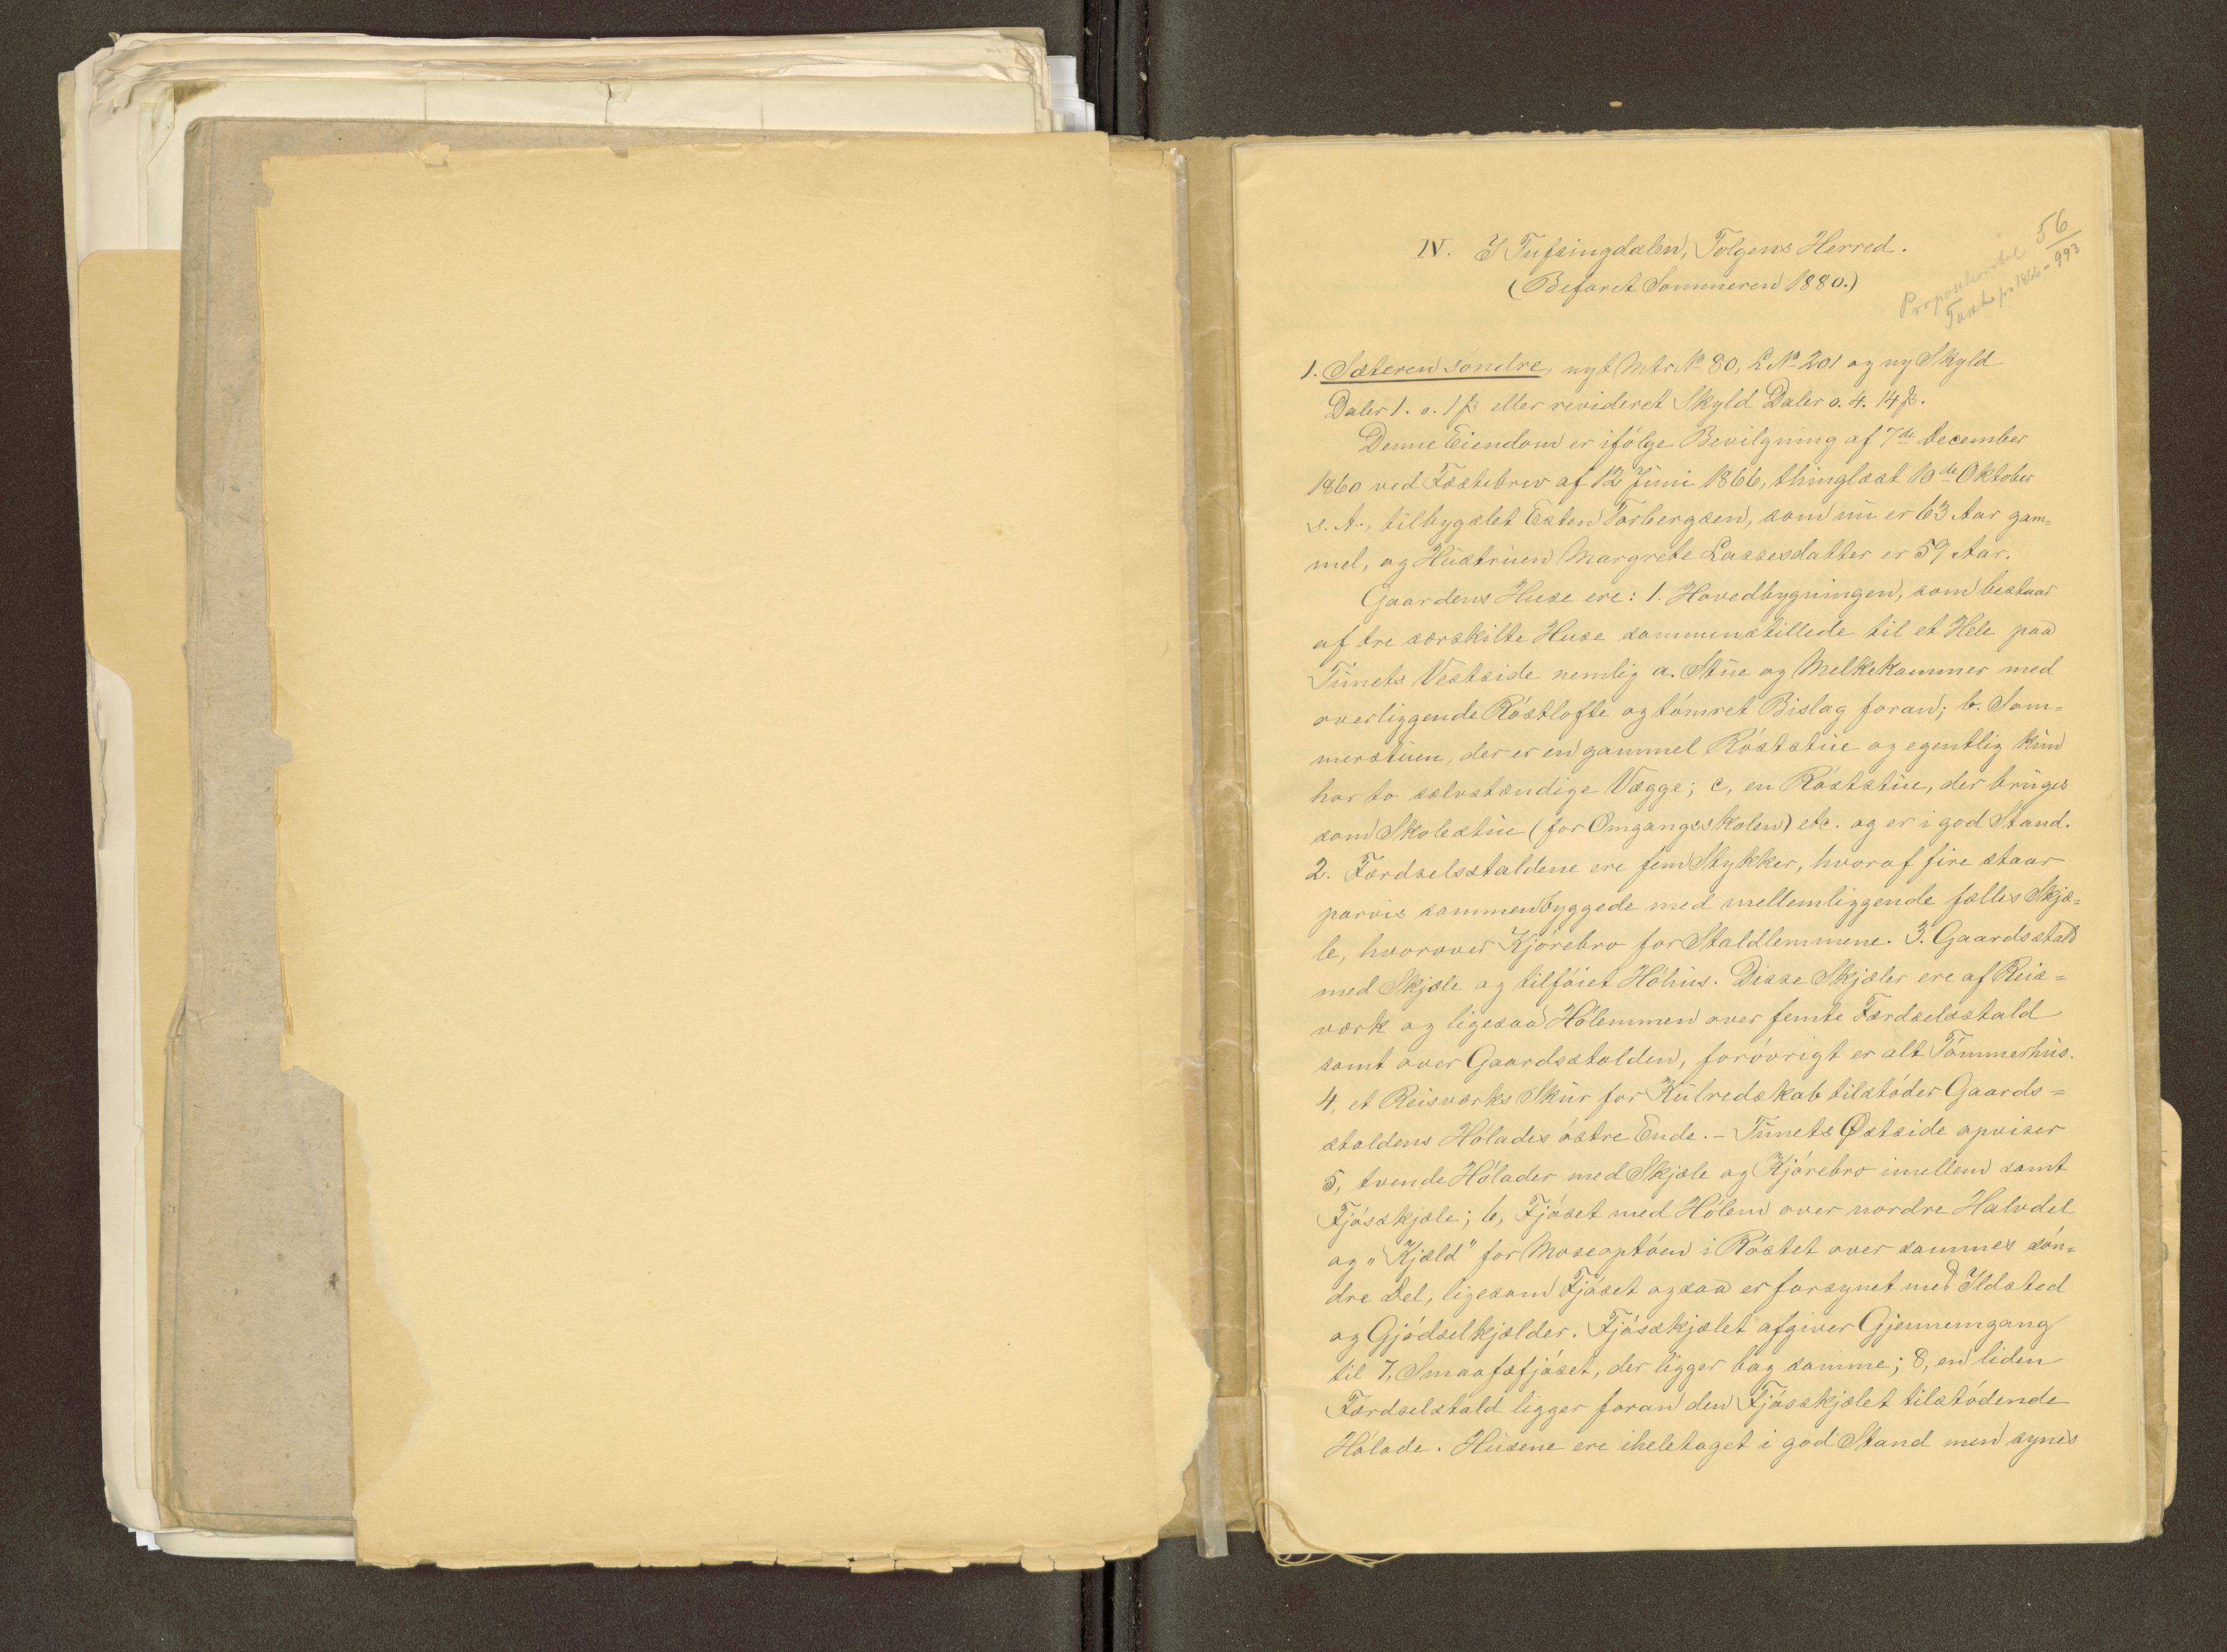 IV. I Tufsingdalen, Tolgens Herred.
(Befaret Sommeren 1880.)
56
993
1. Sæteren søndre, nyt Mtr. No 80, L. No 201 og ny Skyld
Daler 1. o. 1 ß eller revideret Skyld Daler o. 4. 14 ß.
Denne Eiendom er ifølge Bevilgning af 7de December
1860 ved Fæstebrev af 12 Juni 1866, thinglæst 10de Oktober
s. A., tilbygslet Esten Torbergsen, som nu er 63 Aar gam=
mel, og Hustruen Margrete Lassesdatter er 59 Aar.
Gaardens Huse ere: 1. Hovedbygningen, som bestaar
af tre særskilte Huse sammenstillede til et Hele paa
Tunets Vestside nemlig a. Stue og Melkekammer med
overliggende Røstlofte og tømret Bislag foran; b. Som=
merstuen, der er en gammel Røststue og egentlig kun
har to selvstændige Vægge; c, en Røststue, der bruges
som Skolestue (for Omgangsskolen) etc. og er i god Stand.
2. Færdselsstaldene ere fem Stykker, hvoraf fire staar
parvis sammenbyggede med mellemliggende fælles Skjæ=
le, hvorover Kjørebro for Staldlemmene. 3. Gaardsstald
med Skjæle og tilføiet Høhus. Disse Skjæler ere af Reis=
værk og ligesaa Hølemmen over femte Færdselsstald
samt over Gaardsstalden, forøvrigt er alt Tømmerhus.
4, et Reisværks Skur for Kulredskab tilstøder Gaards=
staldens Hølades østre Ende. - Tunets Østside opviser
5, tvende Hølader med Skjæle og Kjørebro imellem samt
Fjøsskjæle; 6, Fjøset med Hølem over nordre Halvdel
og "Kjæld" for Moseoptøen i Røstet over sammes søn=
dre Del, ligesom Fjøset ogsaa er forsynet med Ildsted
og Gjødselkjælder. Fjøsskjælet afgiver Gjennemgang
til 7, Smaafæfjøset, der ligger bag samme; 8, en liden
Færdselstald ligger foran den Fjøsskjælet tilstødende
Hølade. Husene ere iheletaget i god Stand men synes